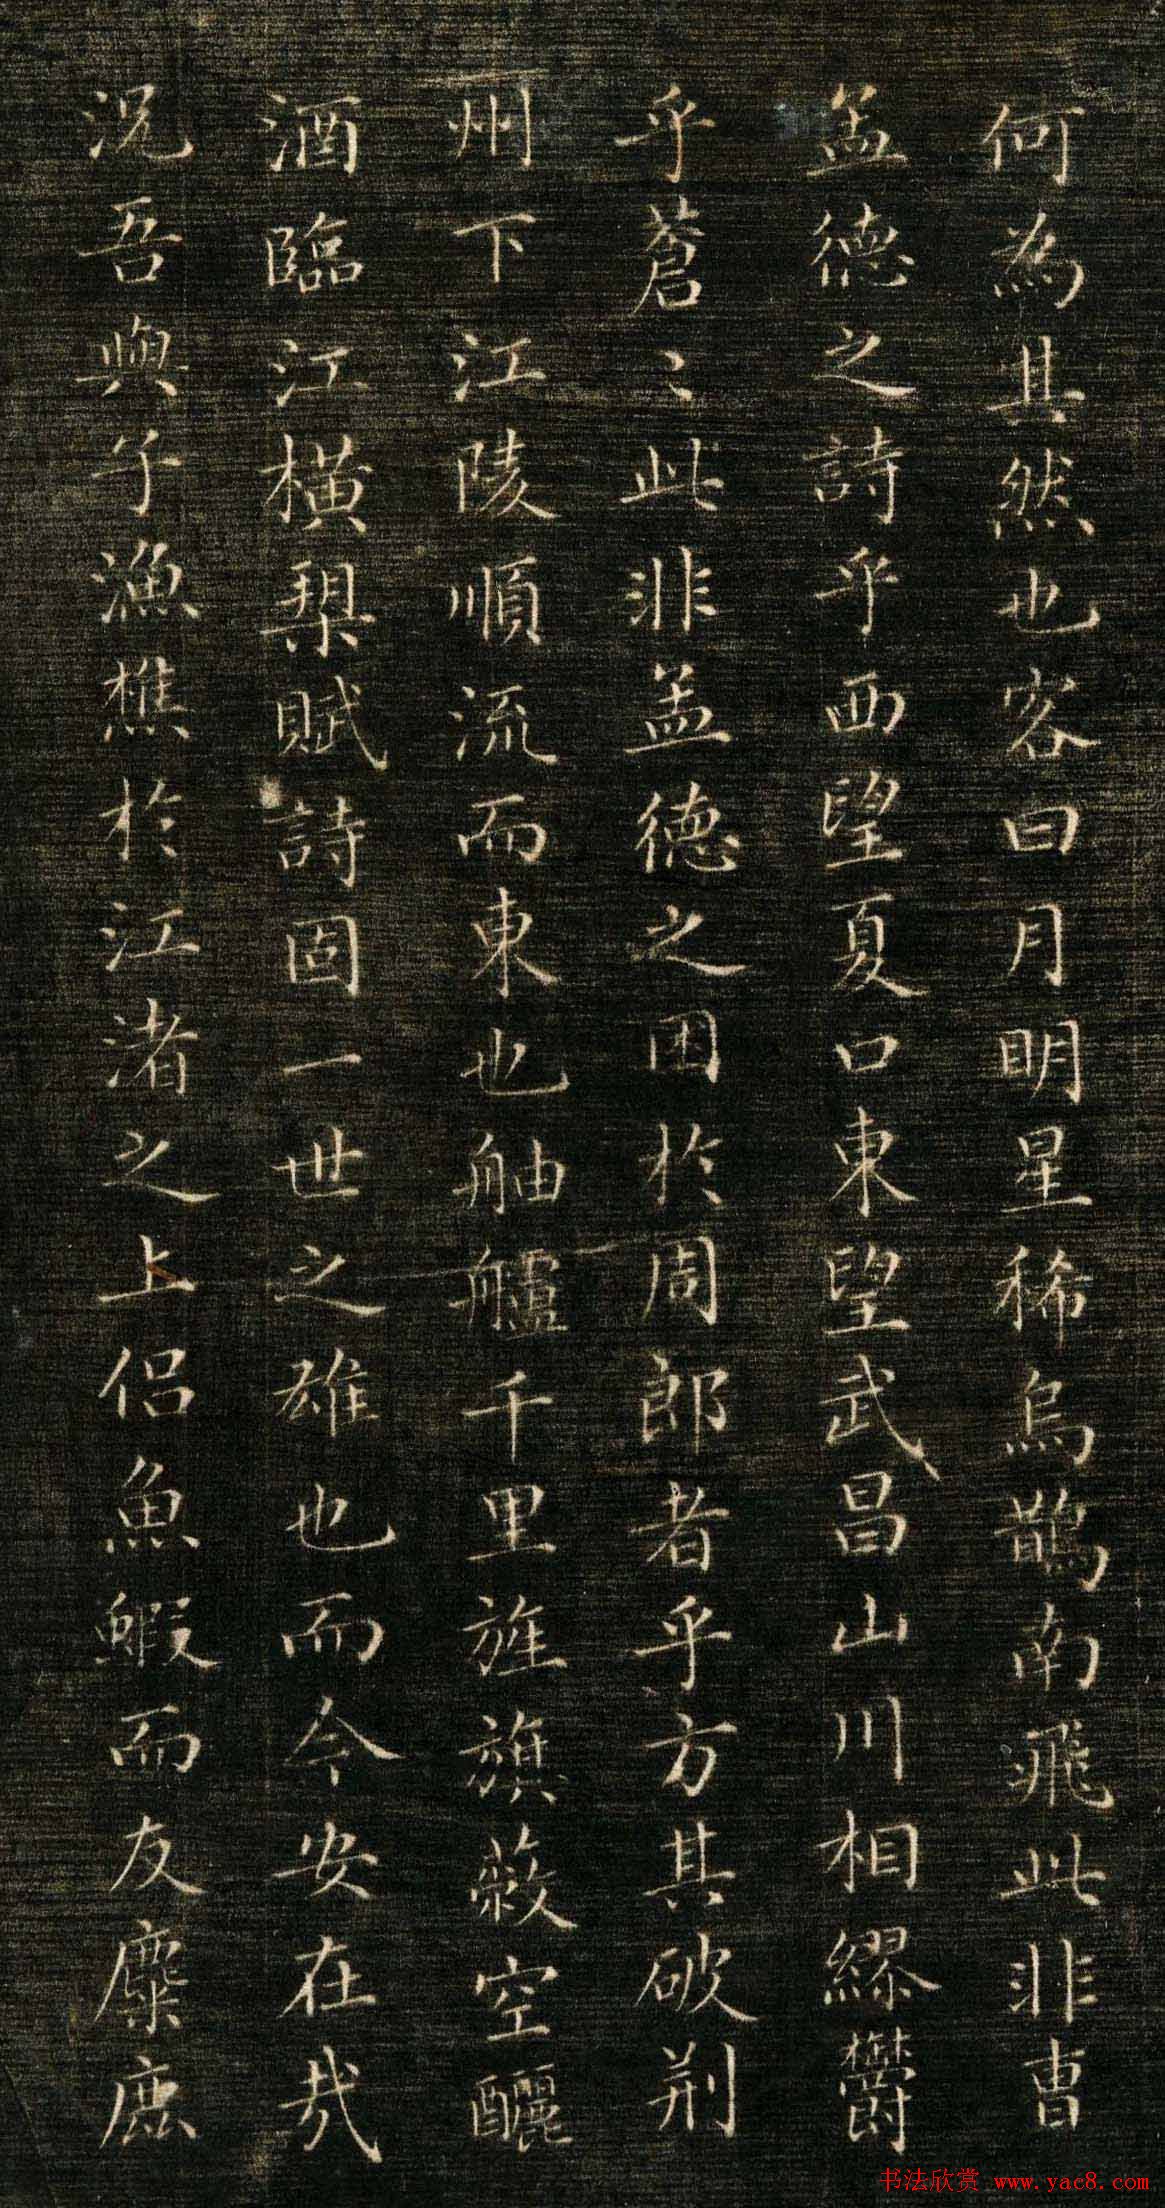 何為其然也客曰月明星稀烏鵲南飛此非曹
孟德之詩乎西望夏口東望武昌山川相繆鬱
乎蒼〻此非孟德之困於周郎者乎方其破荊
州下江陵順流而東也舳艫千里旌旗蔽空釃
酒臨江橫槊賦詩固一世之雄也而今安在哉
況吾與子漁樵於江渚之上侶魚鰕而友麋鹿
书法欣赏 www.yac8.com